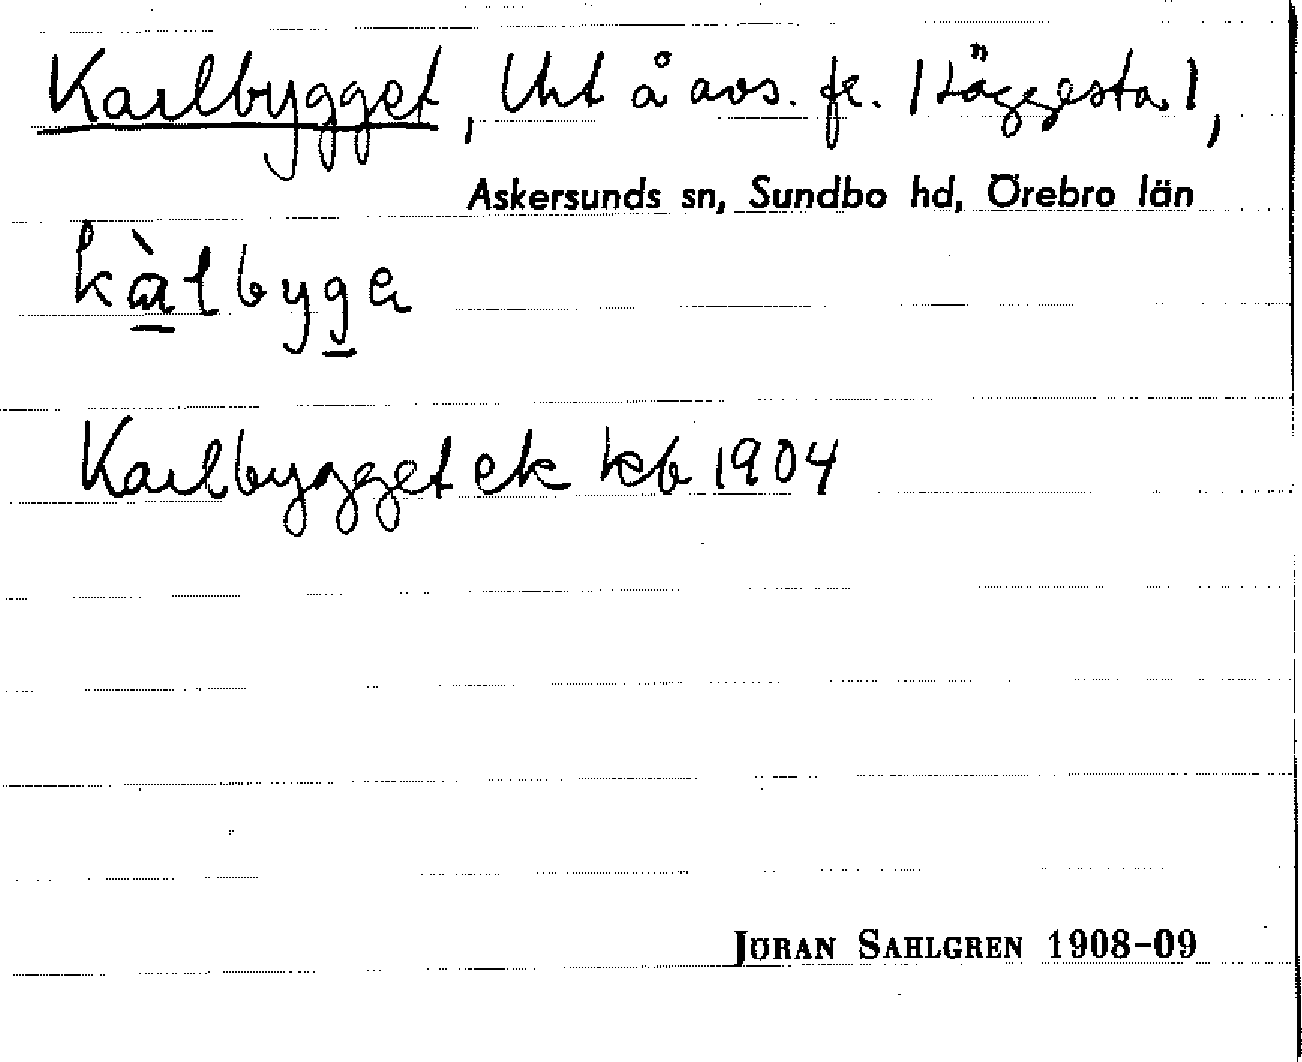 Karlbygget, Uht å avs. fr. 1 Häggesta 1,
Askersunds sn, Sundbo hd, Örebro län
kàlbyga
Karlbygget ek kb 1904
JÖRAN SAHLGREN 1908-09